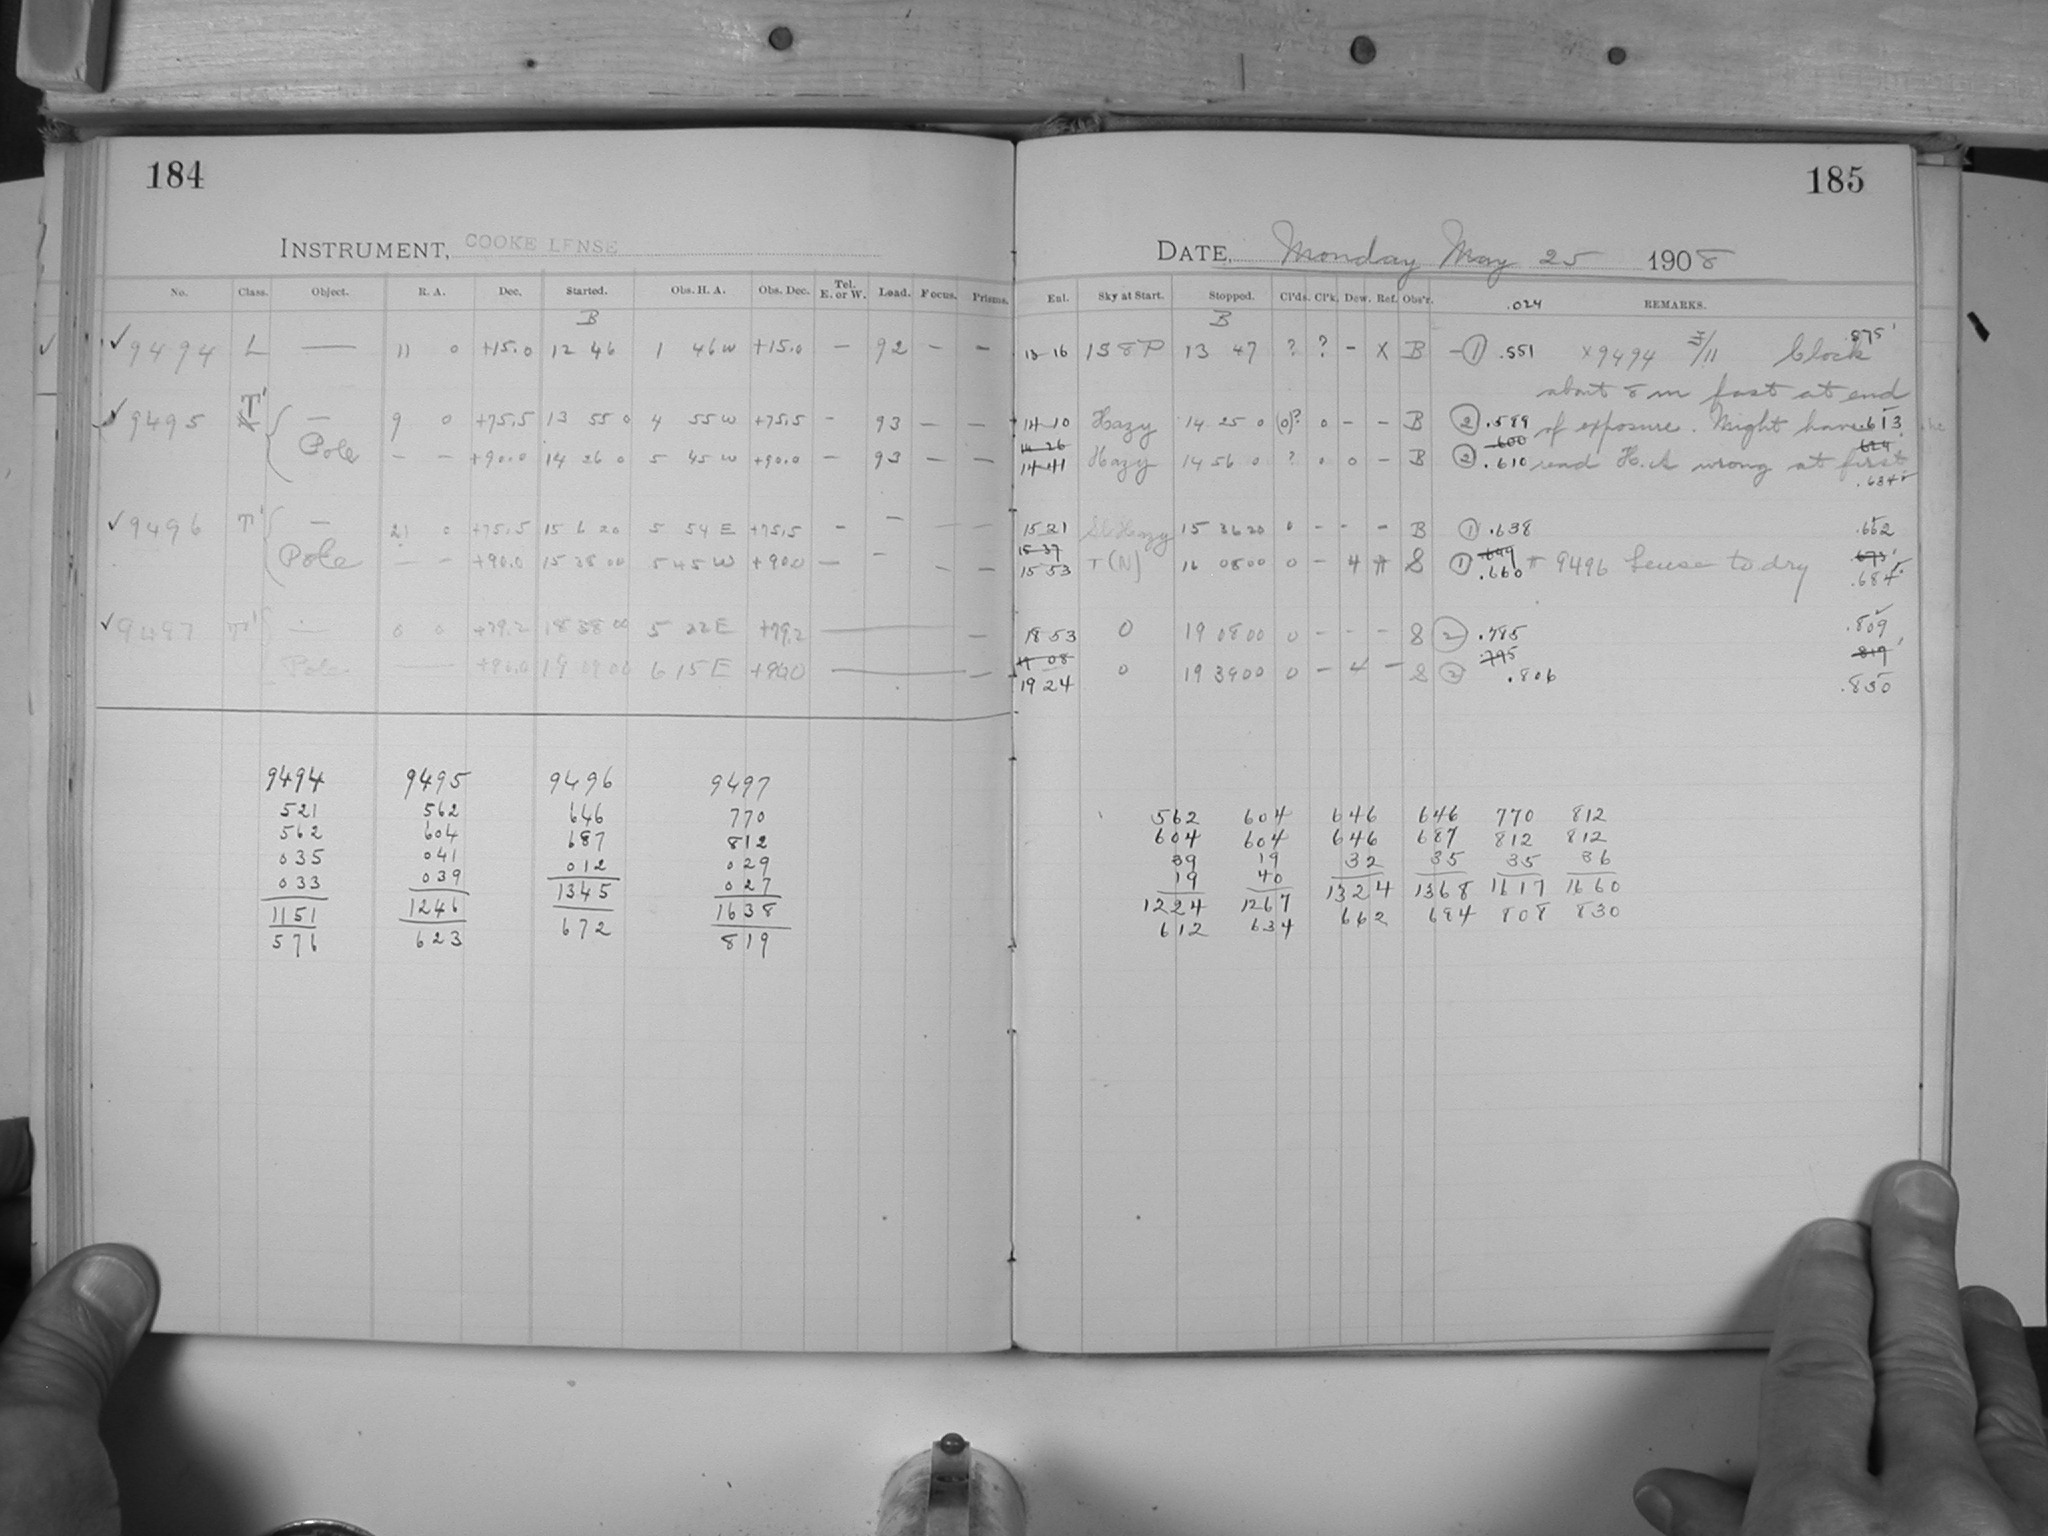 184
INSTRUMENT, COOKE LENSE
No. Class. Object. R. A. Dec. Started. Obs. H. A. Obs. Dec. Tel. E. or W. Load. Focus. Prisms.
B
✓ 9494 L — 11 0 +15.0 12 46 1 46 W +15.0 — 92 — —
✓ 9495 T' — 9 0 +75.5 13 55 0 4 55 W +75.5 — 93 — —
Pole — — +90.0 14 26 0 5 45 W +90.0 — 93 — —
✓ 9496 T' — 21 0 +75.5 15 6 20 5 54 E +75.5 — — — —
Pole — — +90.0 15 38 00 5 45 W +90.0 — — — —
✓ 9497 T' — 0 0 +79.2 18 38 00 5 22 E +79.2 — —
Pole — +90.0 19 09 00 6 15 E +90.0 — —
9494 9495 9496 9497
521 562 646 770
562 604 687 812
035 041 012 029
033 039 1345 027
1151 1246 672 1638
576 623 819
185
DATE, Monday May 25 1908
Ent. Sky at Start. Stopped. Cl'ds. Cl'k. Dew. Ref. Obs'r. .024 REMARKS.
B
13 16 1S8P 13 47 ? ? - X B - ① .551 × 9494 Clock .575'
about 8 m fast at end
14 10 Hazy 14 25 0 (0)? 0 - - B ② .589 of exposure. Might have .613
14 26 .600 .624
14 41 Hazy 14 56 0 ? 0 0 - B ② .610 read H.A. wrong at first
.634
15 21 Sl Hazy 15 36 20 0 - - - B ① .638 .662
15 37 .649 .673'
15 53 T (N) 16 08 00 0 - 4 # S ① .660 # 9496 Lense to dry .684
18 53 0 19 08 00 0 - - - S ② .785 .809
19 08 .795 .819
19 24 0 19 39 00 0 - 4 - S ② .806 .830
562 604 646 646 770 812
604 604 646 687 812 812
39 19 32 35 35 36
19 40 1324 1368 1617 1660
1224 1267 662 684 808 830
612 634